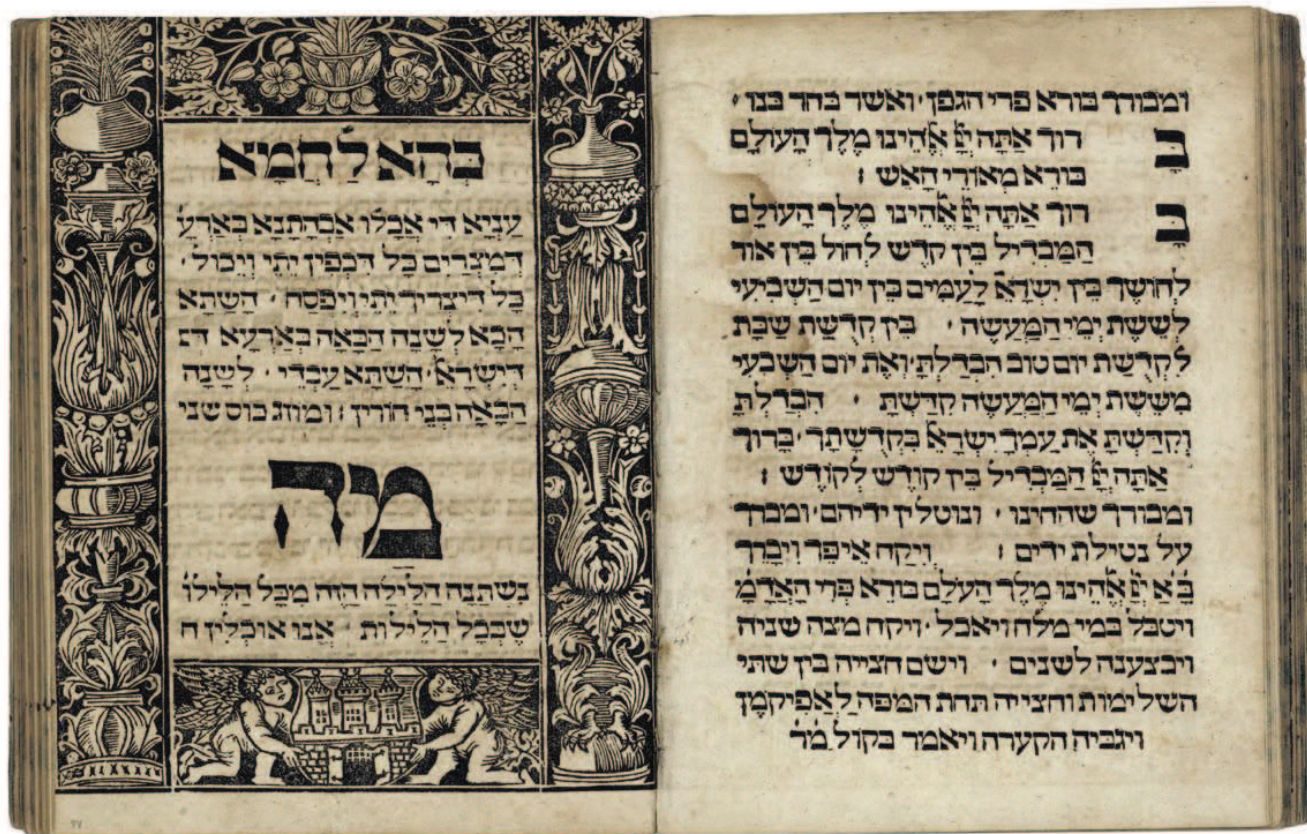 ומבורך בורא פרי הגפן · ואשר בחר בנו ·
ברוך אתה יי אלהינו מלך העולם
בורא מאורי האש :
ברוך אתה יי אלהינו מלך העולם
המבדיל בין קדש לחול בין אור
לחושך בין ישרא לעמים בין יום השביעי
לששת ימי המעשה · בין קדשת שבת
לקדשת יום טוב הבדלת · ואת יום השבעי
מששת ימי המעשה קדשת · הבדלת
וקדשת את עמך ישרא בקדשתך · ברוך
אתה יי המבדיל בין קודש לקודש :
ומבורך שהחינו · ונוטלין ידיהם · ומברך
על נטילת ידים : ויקח איפך ויברך
בא יי אלהינו מלך העולם בורא פרי האדמ
ויטבל במי מלח ויאכל · ויקח מצה שניה
ויבצענה לשנים · וישם חצייה בין שתי
השלימות וחצייה תחת המפה לאפיקמן
ויגביה הקערה ויאמר בקול רם
כהא לחמא
עניא די אכלו אבהתנא בארע
דמצרים כל דכפין יתי ויכול ·
כל דיצריך יתי ויפסח · השתא
הכא לשנה הבאה בארעא דיש
דישרא · השתא עבדי · לשנה
הבאה בני חורין : ומוזג כוס שני
מה
נשתנה הלילה הזה מכל הלילו
שבכל הלילות אנו אוכלין ח